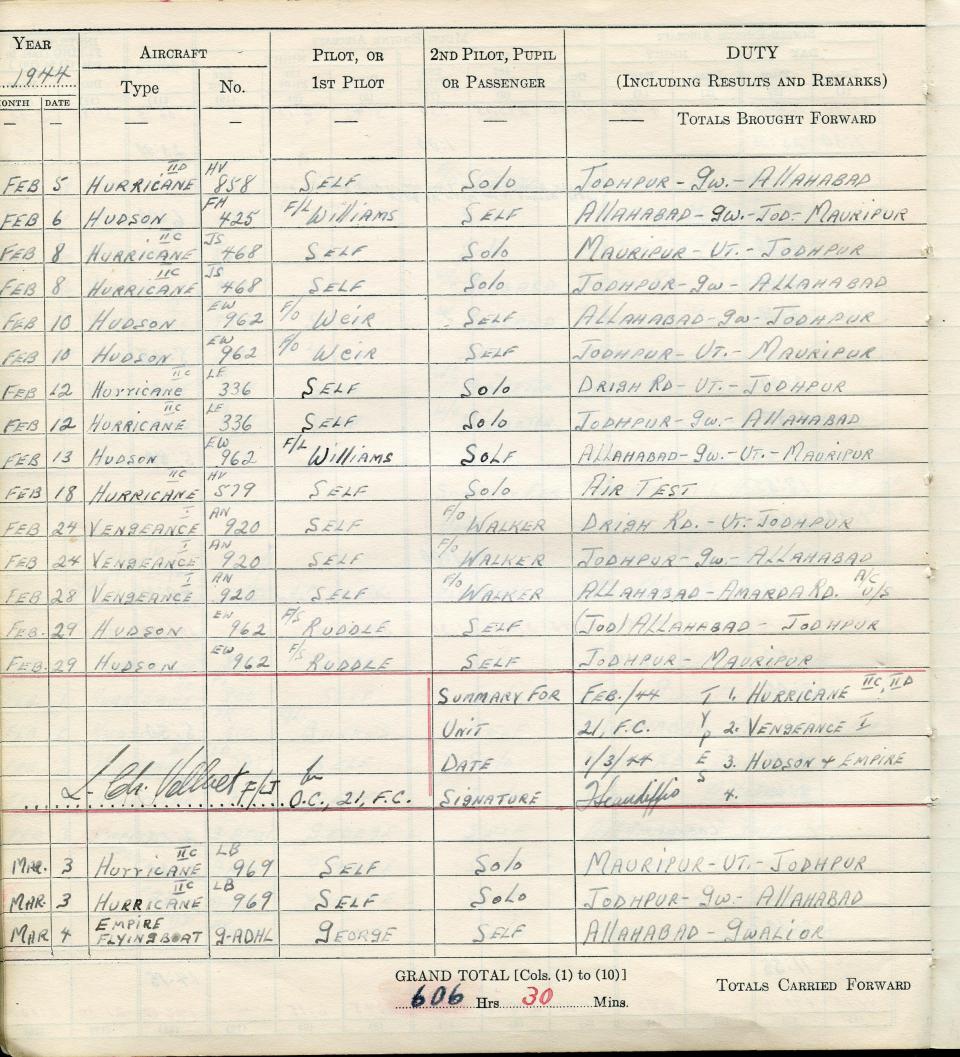 YEAR AIRCRAFT PILOT, OR 2ND PILOT, PUPIL DUTY
1944 Type No. 1ST PILOT OR PASSENGER (INCLUDING RESULTS AND REMARKS)
MONTH DATE
— — — — — — —— TOTALS BROUGHT FORWARD
FEB 5 HURRICANE IID HV 858 SELF SOLO JODHPUR - GW. - ALLAHABAD
FEB 6 HUDSON FH 425 F/L WILLIAMS SELF ALLAHABAD - GW. - JOD - MAURIPUR
FEB 8 HURRICANE IIC JS 468 SELF SOLO MAURIPUR - UT. - JODHPUR
FEB 8 HURRICANE IIC JS 468 SELF SOLO JODHPUR - GW - ALLAHABAD
FEB 10 HUDSON EW 962 F/O WEIR SELF ALLAHABAD - GW - JODHPUR
FEB 10 HUDSON EW 962 F/O WEIR SELF JODHPUR - UT. - MAURIPUR
FEB 12 HURRICANE IIC LE 336 SELF SOLO DRIGH RD - UT. - JODHPUR
FEB 12 HURRICANE IIC LE 336 SELF SOLO JODHPUR - GW. - ALLAHABAD
FEB 13 HUDSON EW 962 F/L WILLIAMS SOLF ALLAHABAD - GW. - UT. - MAURIPUR
FEB 18 HURRICANE IIC HV 579 SELF SOLO AIR TEST
FEB 24 VENGEANCE I AN 920 SELF F/O WALKER DRIGH RD. - UT. - JODHPUR
FEB 24 VENGEANCE I AN 920 SELF F/O WALKER JODHPUR - GW. - ALLAHABAD
FEB 28 VENGEANCE I AN 920 SELF F/O WALKER ALLAHABAD - AMARDA RD. A/C U/S
FEB. 29 HUDSON EW 962 F/S RUDDLE SELF (JOD) ALLAHABAD - JODHPUR
FEB. 29 HUDSON EW 962 F/S RUDDLE SELF JODHPUR - MAURIPUR
SUMMARY FOR FEB./44 TYPES 1. HURRICANE IIC, IID
UNIT 21, F.C. 2. VENGEANCE I
DATE 1/3/44 3. HUDSON & EMPIRE
F/LT O.C., 21, F.C. SIGNATURE 4.
MAR. 3 HURRICANE IIC LB 969 SELF SOLO MAURIPUR - UT. - JODHPUR
MAR. 3 HURRICANE IIC LB 969 SELF SOLO JODHPUR - GW. - ALLAHABAD
MAR 4 EMPIRE FLYINGBOAT G-ADHL GEORGE SELF ALLAHABAD - GWALIOR
GRAND TOTAL [Cols. (1) to (10)]
606 Hrs. 30 Mins.
TOTALS CARRIED FORWARD